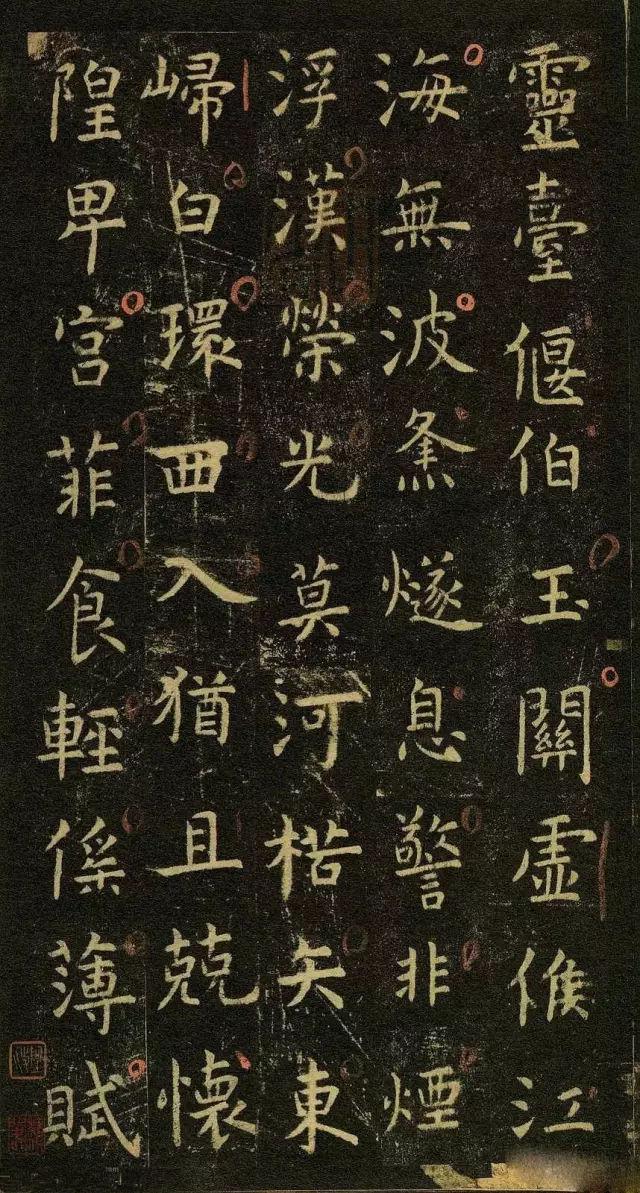 靈臺偃伯玉關虛候江
海無波烽燧息警非煙
浮漢榮光莫河楛矢東
歸白環西入猶且兢懷
隍卑宮菲食輕徭薄賦